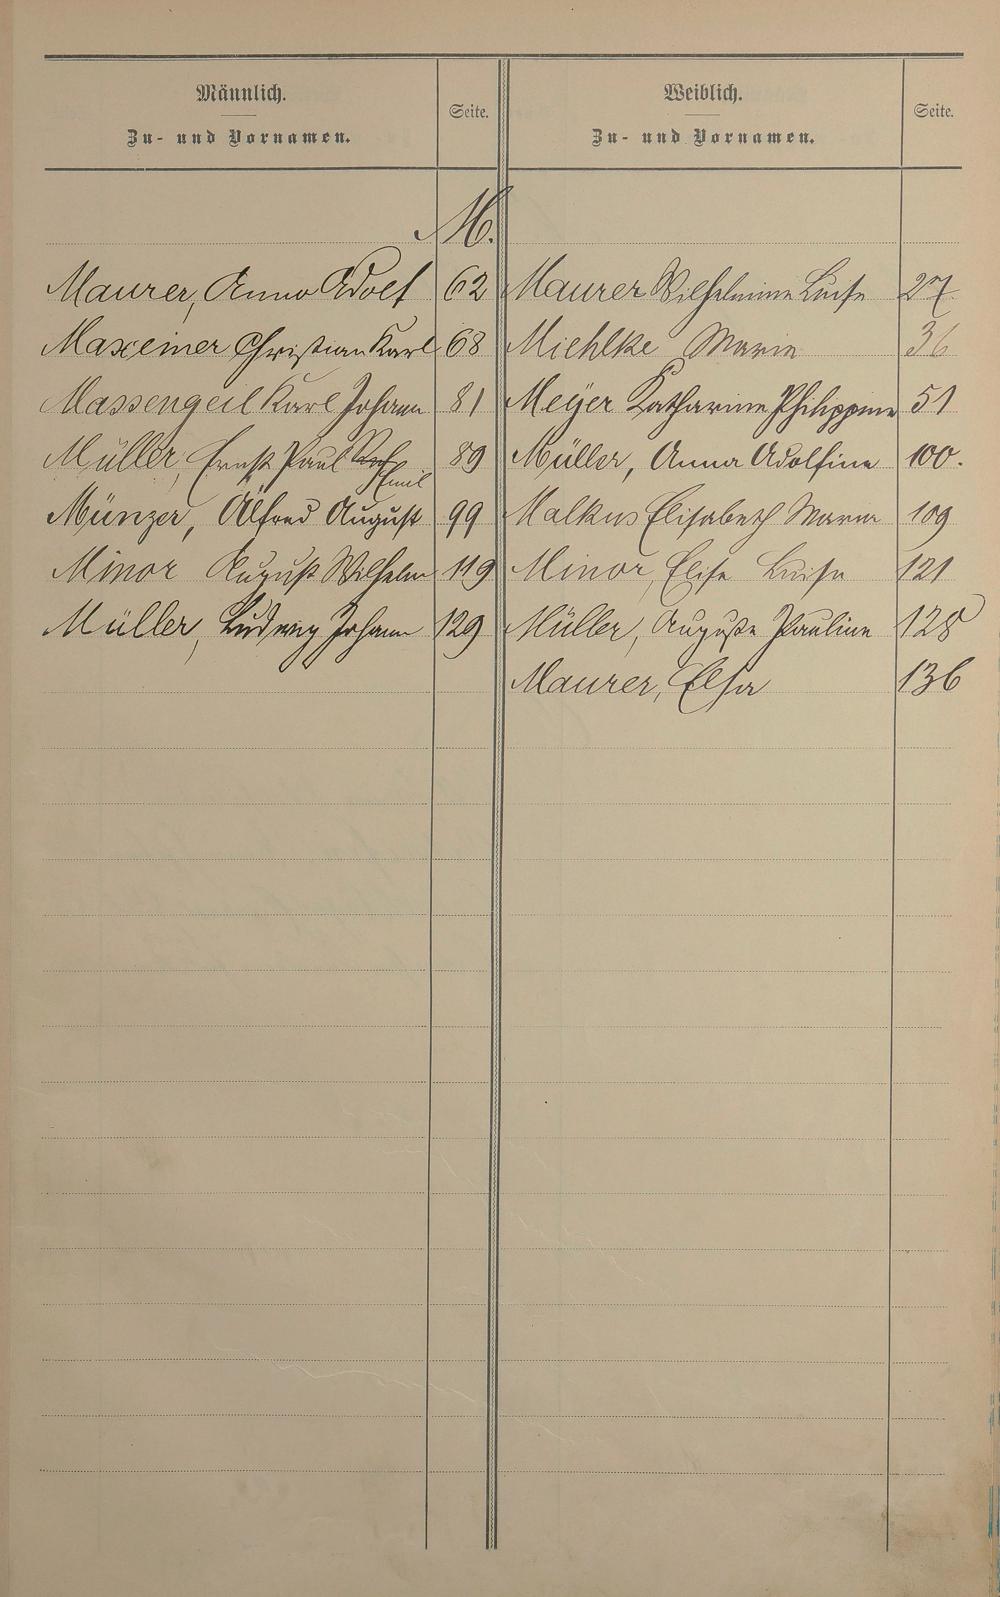 Männlich.
Zu- und Vornamen.
Seite.
Weiblich.
Zu- und Vornamen.
Seite.
M.
Maurer, Anno Adolf 62 Maurer Wilhelmine Luise 27.
Maxeiner Christian Karl 68 Miehlke Marie 36
Massengeil Karl Johann 81 Meÿer Katharine Philippine 51
Müller, Ernst Paul 89 Müller, Anna Adolfine 100.
Emil
Münzer, Alfred August 99 Malkus Elisabeth Maria 109
Minor August Wilhelm 119 Minor, Elise Luise 121
Müller, Ludwig Johann 129 Müller, Auguste Pauline 128
Maurer, Elsa 136